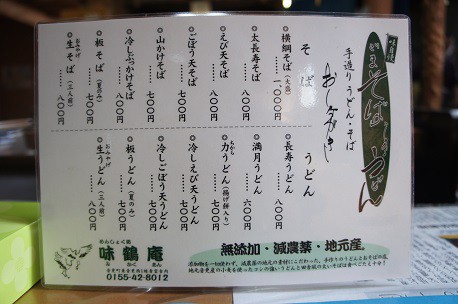 味自慢
そば
うどん
手造りうどん・そば
おしながき
そば
◎横綱そば(大盛)……一、〇〇〇円
◎太長寿そば……八〇〇円
◎えび天そば……七〇〇円
◎ごぼう天そば……七〇〇円
◎山かけそば……七〇〇円
◎冷しぶっかけそば……八〇〇円
◎板そば(夏のみ)……七〇〇円
◎生そば(三人前)……八〇〇円
おみやげ
うどん
◎長寿うどん……八〇〇円
◎満月うどん……六〇〇円
◎力うどん(揚げ餅入り)……七〇〇円
ちから
◎冷しえび天うどん……七〇〇円
◎冷しごぼう天うどん……七〇〇円
◎板うどん(夏のみ)……七〇〇円
◎生うどん(三人前)……八〇〇円
おみやげ
無添加・減農薬・地元産
めんしょく亭
味鶴庵
みかくあん
0155-42-8012